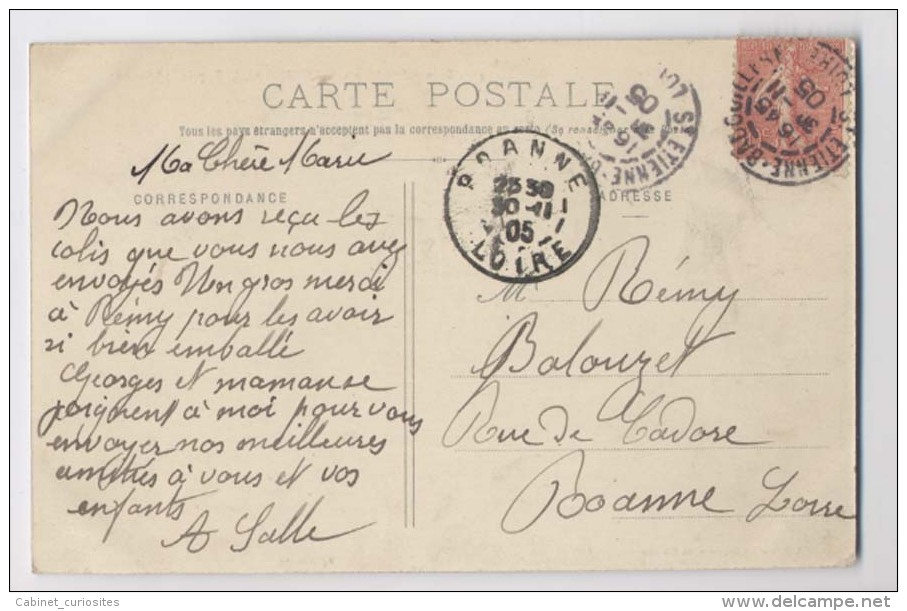 CARTE POSTALE
Tous les pays étrangers n'acceptent pas la correspondance au recto (Se renseigner
Ma Chère Marie
CORRESPONDANCE
ADRESSE
Nous avons reçu les
colis que vous nous avez
envoyés Un gros merci
à Rémy pour les avoir
si bien emballé
Georges et maman se
joignent à moi pour vous
envoyer nos meilleures
amitiés à vous et vos
enfants
A Salle
Mr Rémy
Balouzet
Rue de Cadore
Roanne Loire
ROANNE
23 30
30-11
05
LOIRE
ST ETIENNE
05
ST ETIENNE-BADOUILLÈRE
LOIRE
05
Cabinet_curiosites
delcampe.net